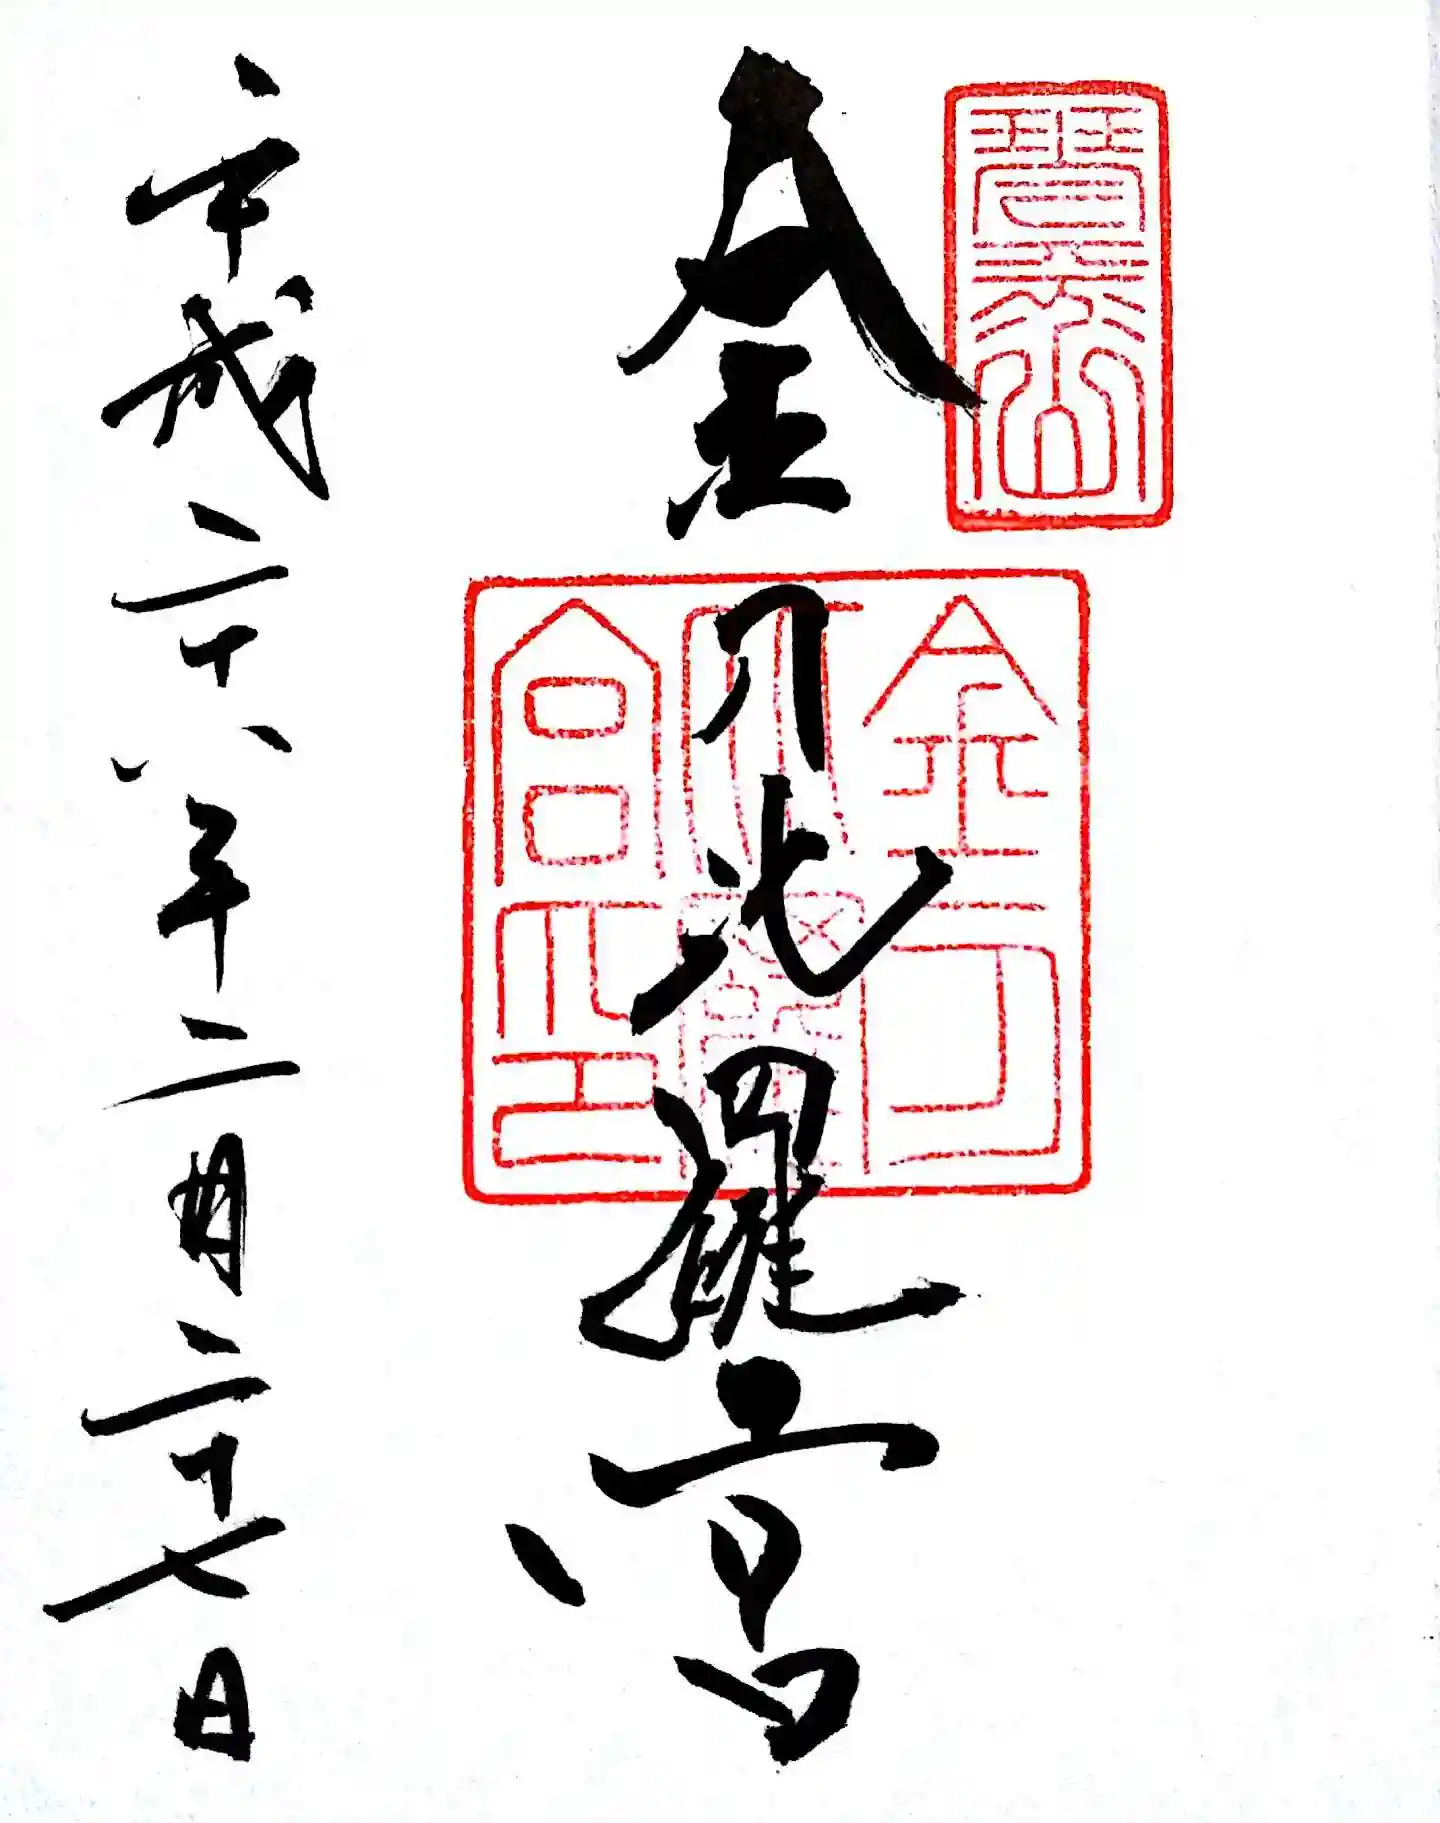 琴平山
金刀比羅宮
金刀比羅宮之印
平成二十八年二月二十七日